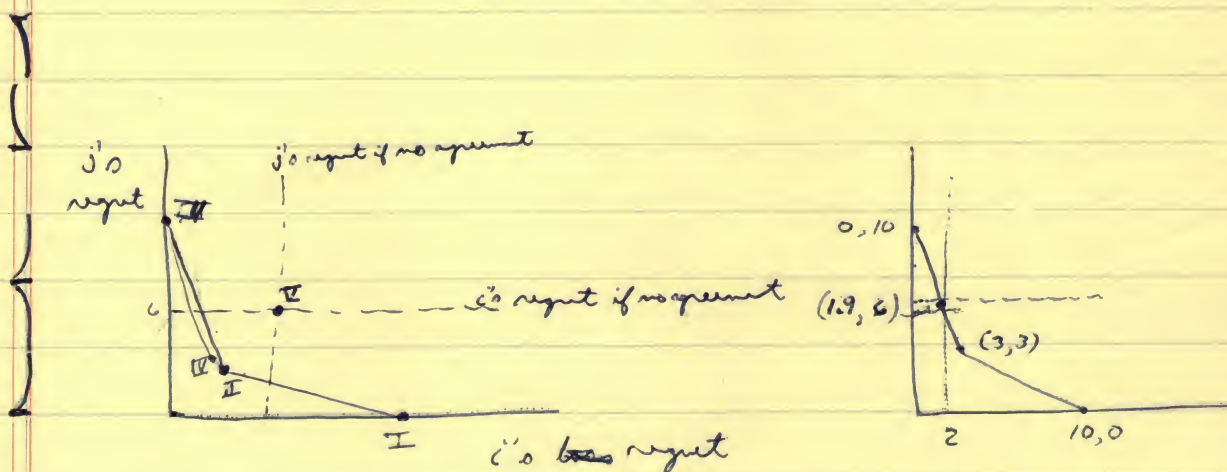 j's regret if no agreement
j's
regret
III
6
V
i's regret if no agreement
IV
II
I
i's regret
0,10
(1.9, 6)
(3,3)
2
10,0